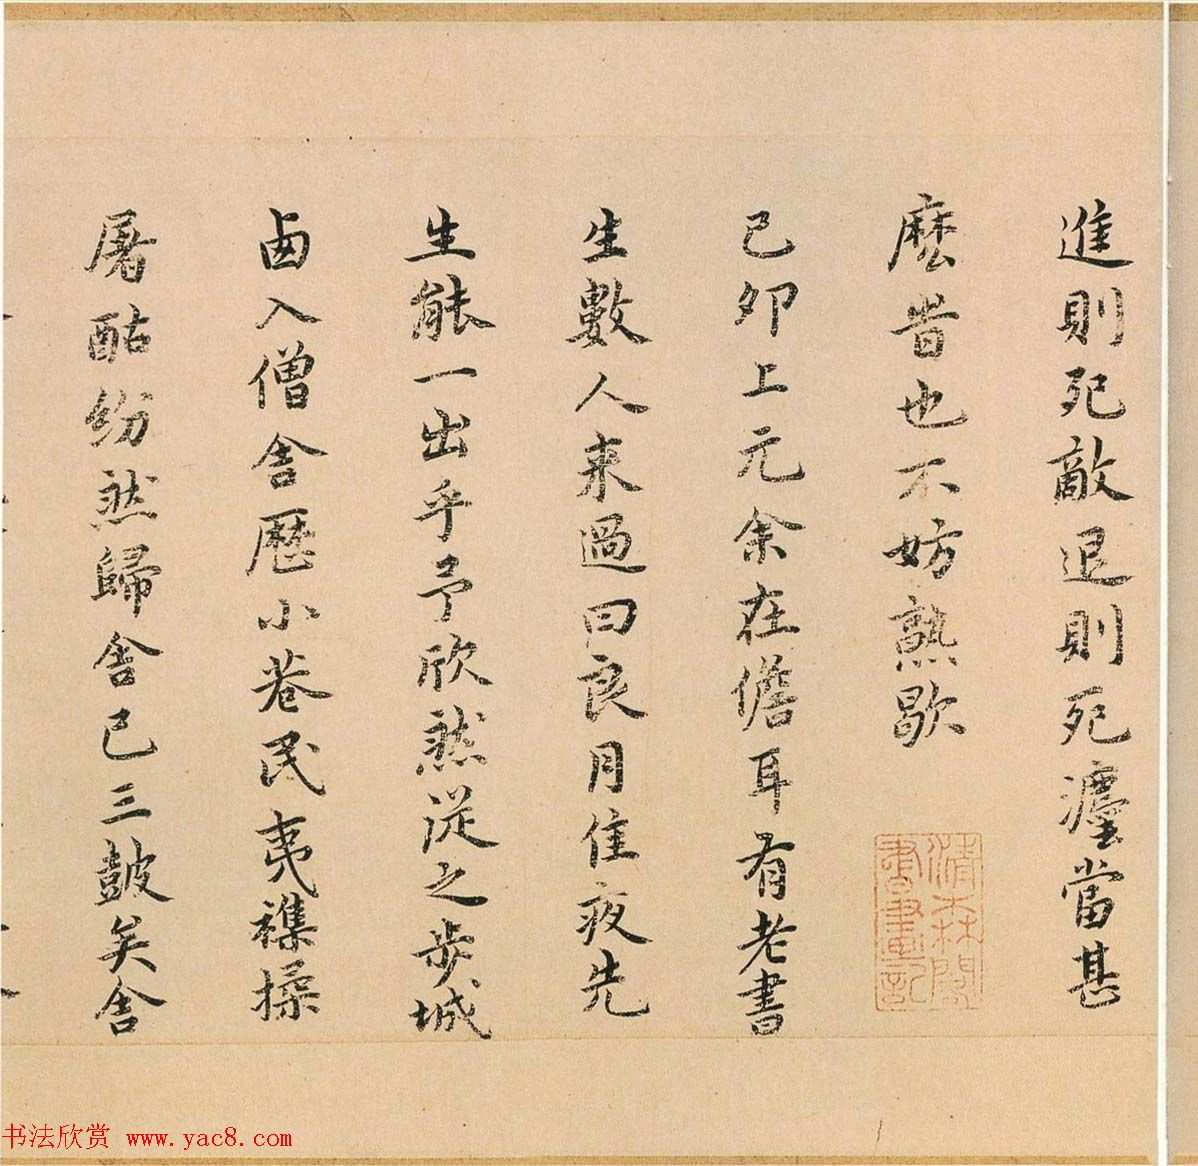 進則死敵退則死灋當甚
麽旹也不妨熟歇
己卯上元余在儋耳有老書
生數人来過曰良月佳夜先
生能一出乎予欣然從之步城
卥入僧舍歷小巷民夷襍操
屠酤紛然歸舍已三鼓矣舍
清森閣書畫記
书法欣赏 www.yac8.com